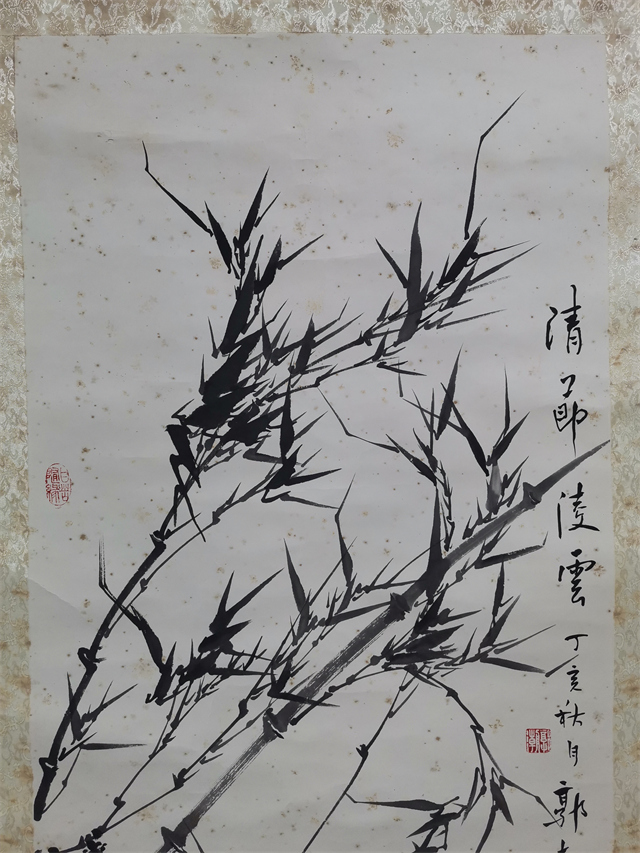 清節凌雲 丁亥秋月 郭